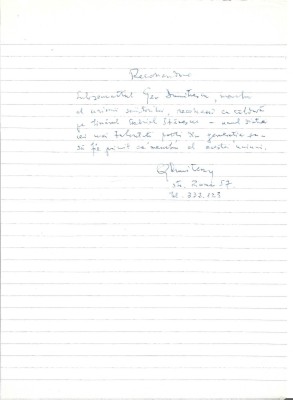 Recomandare
Subsemnatul Geo Dumitrescu, membru
al uniunii scriitorilor, recomand cu căldură
pe tînărul Gabriel Stănescu – unul dintre
cei mai talentați poeți din generația sa –
să fie primit ca membru al acestei uniuni.
GDumitrescu
57
tel.